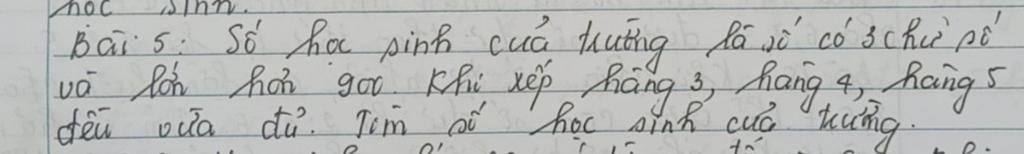 học sinh.
Bài 5: Số học sinh của trường là số có 3 chữ số
và lớn hơn 900. Khi xếp hàng 3, hàng 4, hàng 5
đều vừa đủ. Tìm số học sinh của trường.